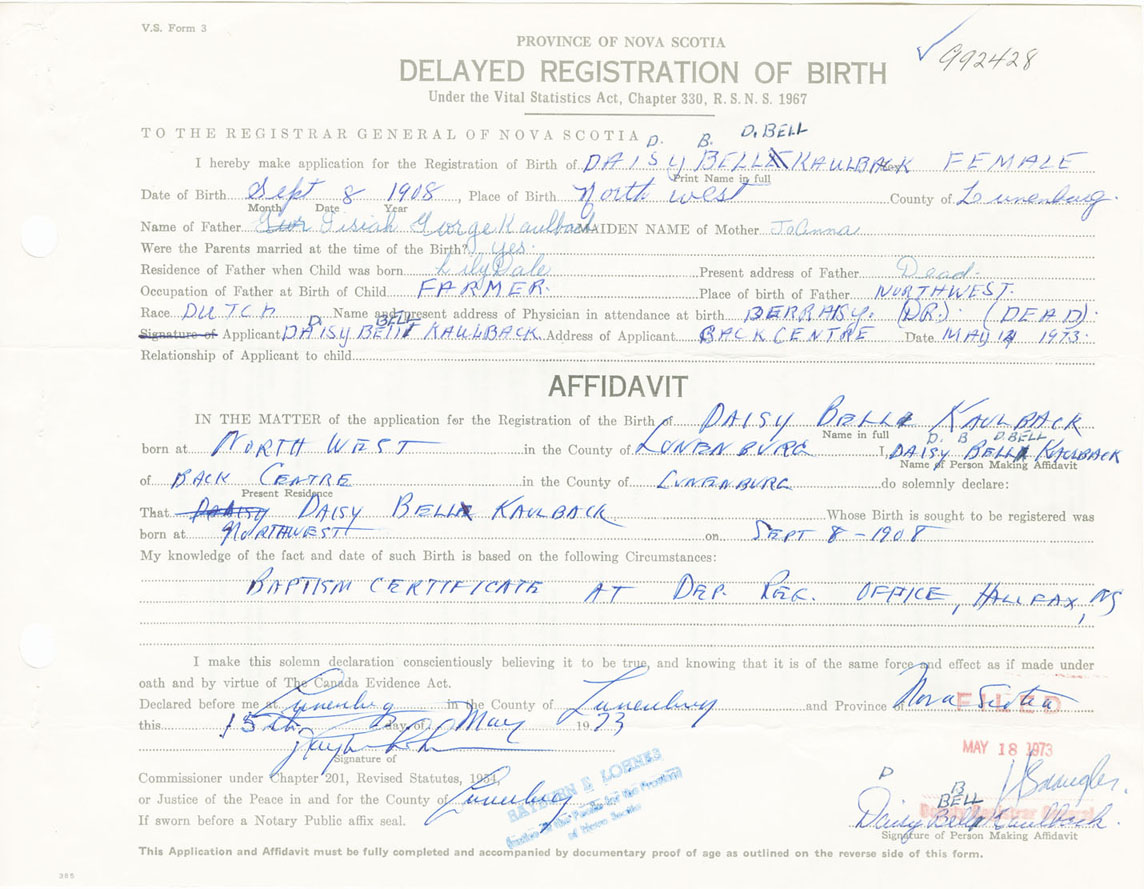 V.S. Form 3
PROVINCE OF NOVA SCOTIA
992428
DELAYED REGISTRATION OF BIRTH
Under the Vital Statistics Act, Chapter 330, R. S. N. S. 1967
TO THE REGISTRAR GENERAL OF NOVA SCOTIA
D. B. D. BELL
I hereby make application for the Registration of Birth of DAISY BELLE KAULBACK FEMALE
Print Name in full
Date of Birth Sept 8 1908, Place of Birth North west County of Lunenburg.
Month Date Year
Name of Father Isiah George Kaulback MAIDEN NAME of Mother JoAnna
Were the Parents married at the time of the Birth? yes.
Residence of Father when Child was born LilyDale Present address of Father Dead.
Occupation of Father at Birth of Child FARMER. Place of birth of Father NORTHWEST.
Race DUTCH Name and present address of Physician in attendance at birth (DR.) (DEAD).
D. BELL
Signature of Applicant DAISY KAULBACK Address of Applicant BACK CENTRE Date MAY 1973.
Relationship of Applicant to child
AFFIDAVIT
IN THE MATTER of the application for the Registration of the Birth of DAISY BELLE KAULBACK
Name in full
D. B D. BELL
born at NORTH WEST in the County of LUNENBURG I, DAISY BELLE KAULBACK
Name of Person Making Affidavit
of BACK CENTRE in the County of LUNENBURG do solemnly declare:
Present Residence
That DAISY BELLE KAULBACK Whose Birth is sought to be registered was
born at NORTHWEST on SEPT 8-1908
My knowledge of the fact and date of such Birth is based on the following Circumstances:
BAPTISM CERTIFICATE AT DEP. REG. OFFICE, HALIFAX, NS
I make this solemn declaration conscientiously believing it to be true, and knowing that it is of the same force and effect as if made under
oath and by virtue of The Canada Evidence Act.
Declared before me at Lunenburg in the County of Lunenburg and Province Nova Scotia
FILED
this 15th day of May 1973
MAY 18 1973
Signature of
Commissioner under Chapter 201, Revised Statutes, 1954,
or Justice of the Peace in and for the County of Lunenburg
RAYBURN E LOHNES
of Nova Scotia
If sworn before a Notary Public affix seal.
D B
BELL
Daisy Belle Kaulback.
Signature of Person Making Affidavit
This Application and Affidavit must be fully completed and accompanied by documentary proof of age as outlined on the reverse side of this form.
385